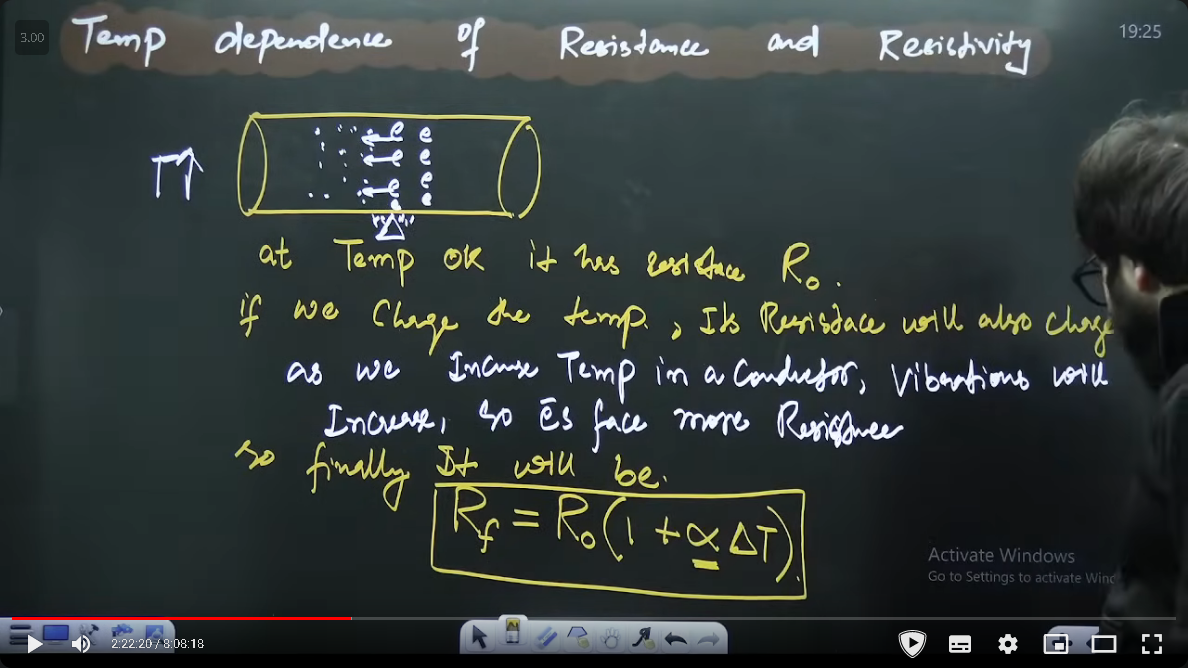 3.00
Temp dependence of Resistance and Resistivity
19:25
T↑
e e
e e
e e
e e
Δ
at Temp 0K it has resistace R₀.
if we Change the temp., Its Resistace will also change
as we Increase Temp in a Conductor, Vibrations will
Increase, so ēs face more Resistance
so finally It will be.
R_f = R₀(1 + α ΔT).
Activate Windows
Go to Settings to activate Winc
2:22:20 / 8:08:18